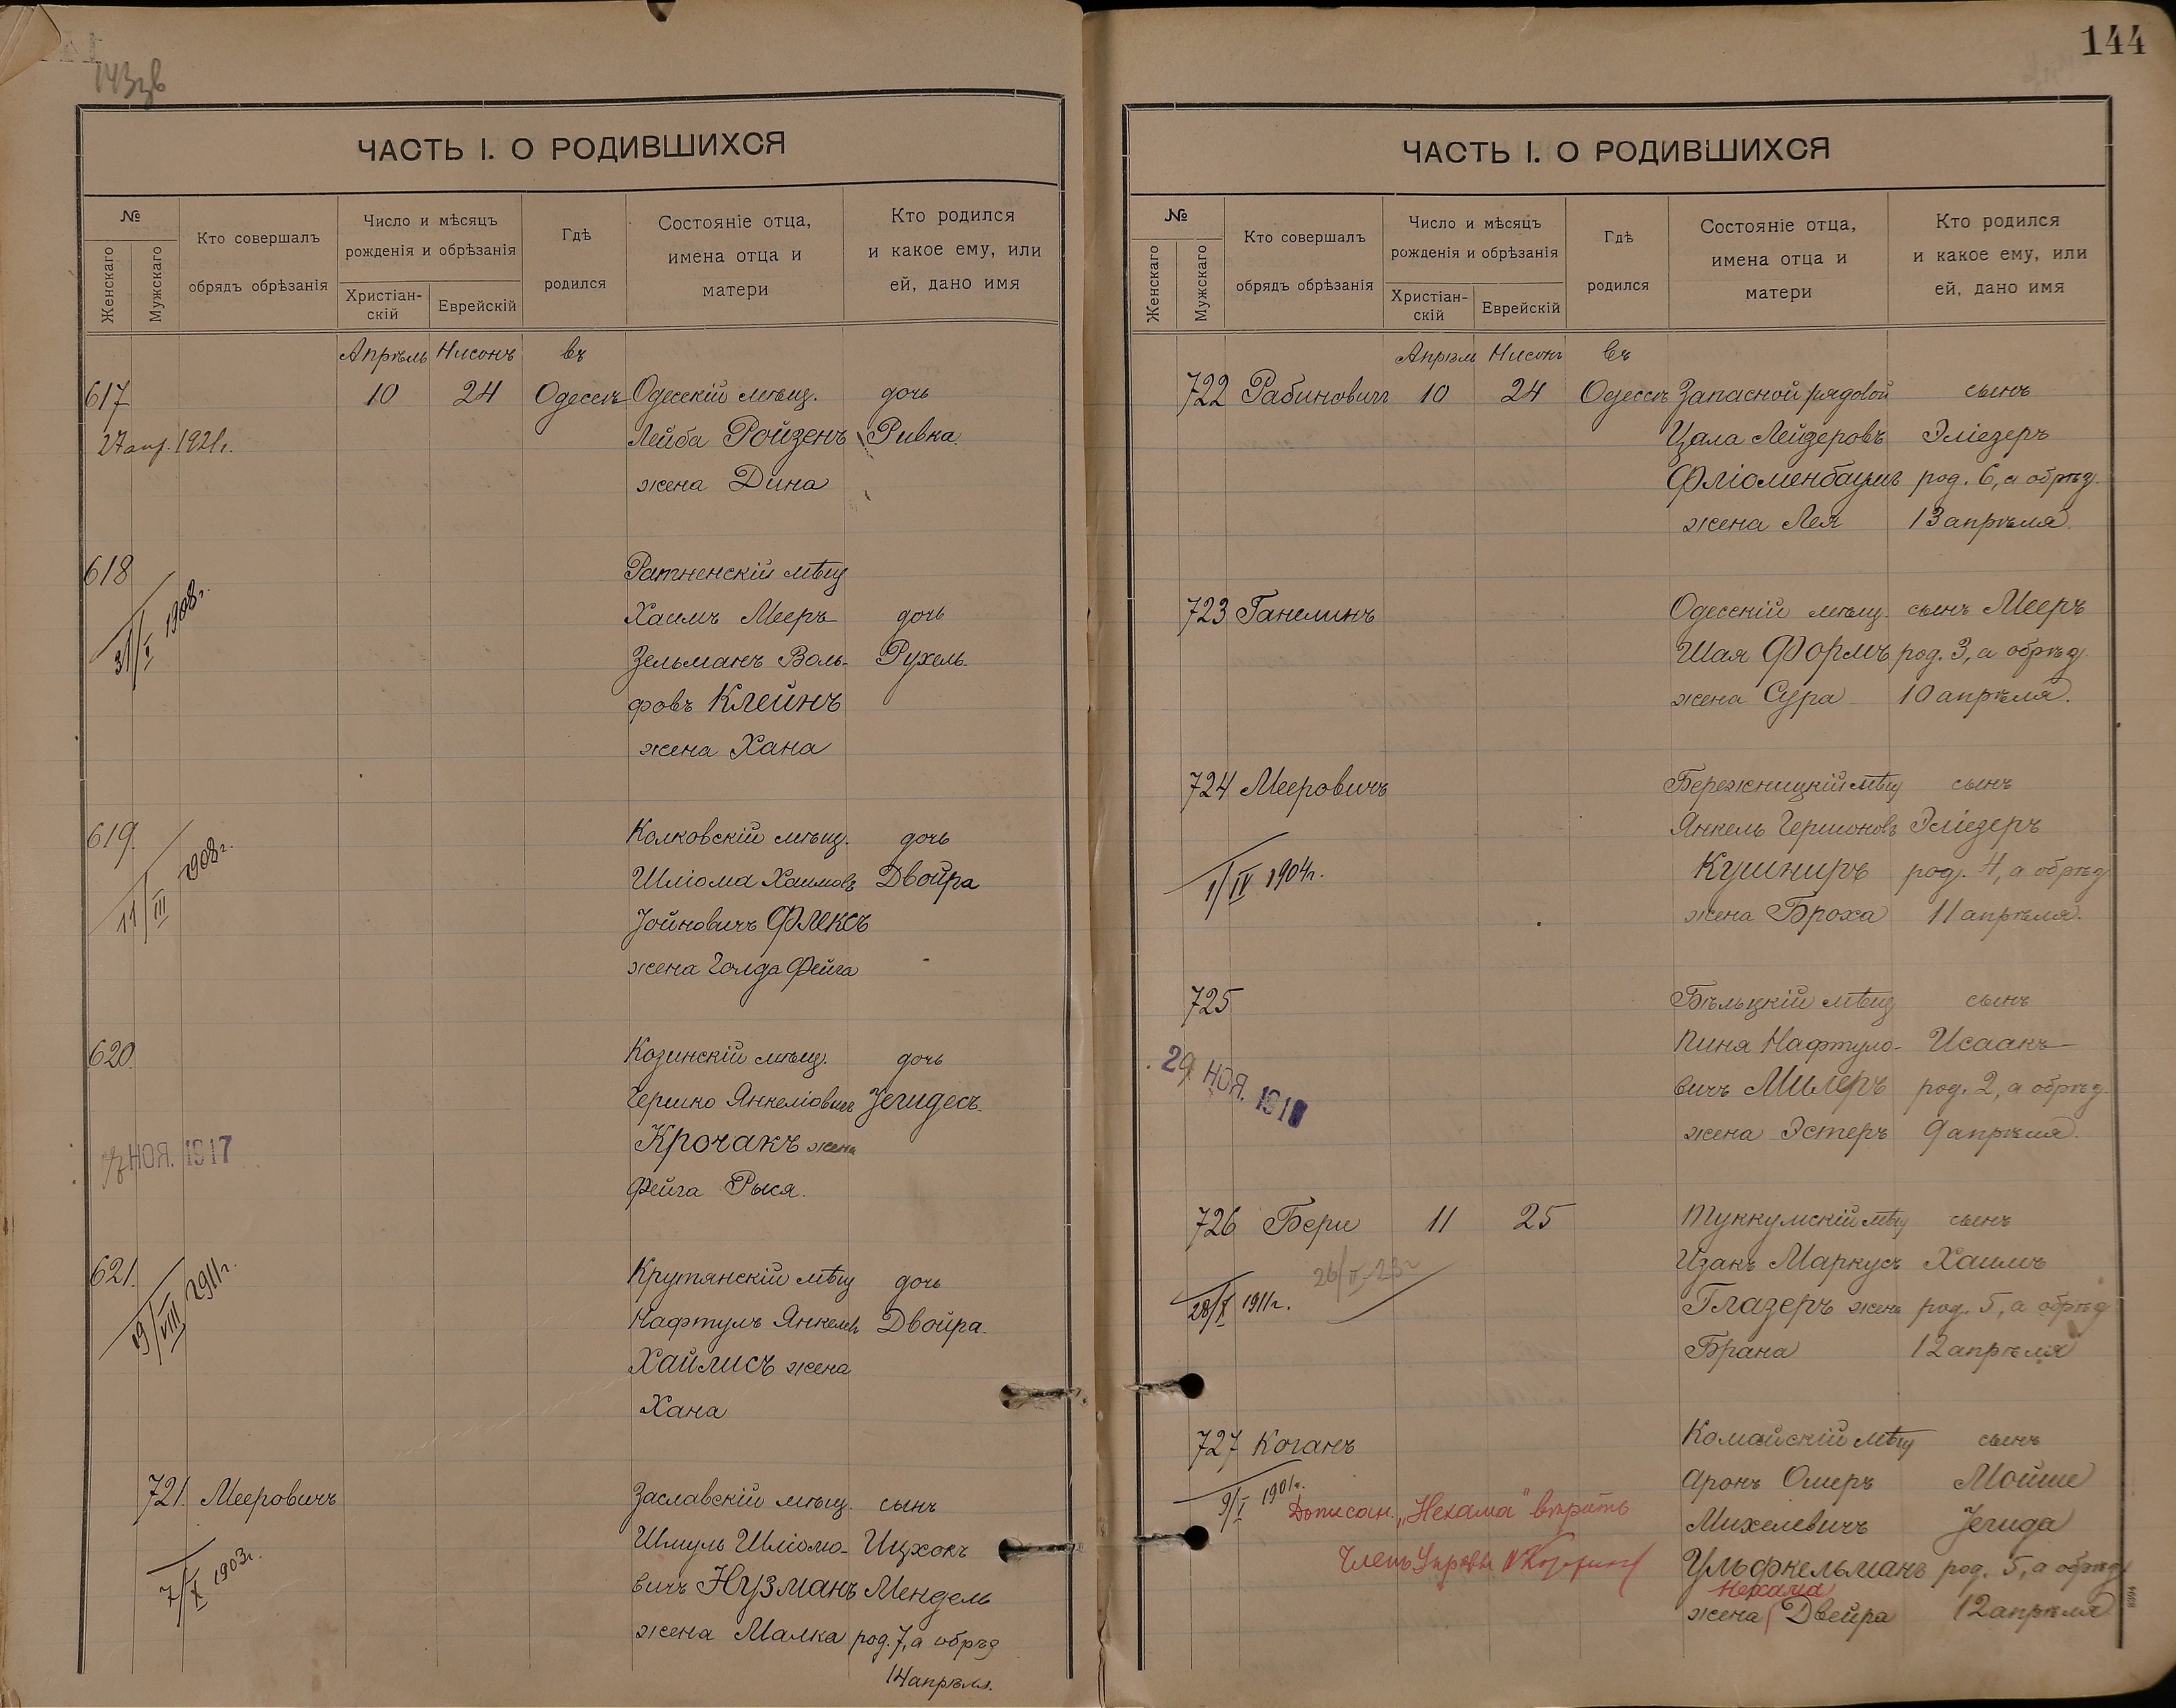 143 зв
ЧАСТЬ I. О РОДИВШИХСЯ
№
Женскаго
Мужскаго
Кто совершалъ
обрядъ обрѣзанія
Число и мѣсяцъ
рожденія и обрѣзанія
Христіан-
скій
Еврейскій
Гдѣ
родился
Состояніе отца,
имена отца и
матери
Кто родился
и какое ему, или
ей, дано имя
Апрѣль Нисонъ въ
617 10 24 Одессѣ Одесскій мѣщ. дочь
27 апр. 1921г. Лейба Ройзенъ Ривка
жена Дина
618 Ратненскій мѣщ
31/I 1908г. Хаимъ Мееръ дочь
Зельманъ Воль- Рухель
фовъ Клейнъ
жена Хана
619. Колковскій мѣщ. дочь
11/III 1908г. Шліома Хаимовъ Двойра
Іойновичъ Флексъ
жена Голда Фейга
620. Козинскій мѣщ. дочь
Гершко Янкеліовичъ Іегидесъ.
НОЯ. 1917 Крочакъ жена
Фейга Рыся.
621. Крутянскій мѣщ дочь
19/VIII 1911г. Нафтулъ Янкелев Двойра.
Хайлисъ жена
Хана
721. Мееровичъ Заславскій мѣщ. сынъ
7/X 1903г. Шмуль Шліомо- Ицхокъ
вичъ Нузманъ Мендель
жена Малка род. 7, а обрѣз
14 апрѣля.
144
ЧАСТЬ I. О РОДИВШИХСЯ
№
Женскаго
Мужскаго
Кто совершалъ
обрядъ обрѣзанія
Число и мѣсяцъ
рожденія и обрѣзанія
Христіан-
скій
Еврейскій
Гдѣ
родился
Состояніе отца,
имена отца и
матери
Кто родился
и какое ему, или
ей, дано имя
Апрѣль Нисонъ въ
722 Рабиновичъ 10 24 Одессѣ Запасной рядовой сынъ
Цала Лейзеровъ Эліезеръ
Фліоменбаумъ род. 6, а обрѣз.
жена Лея 13 апрѣля.
723 Ганелинъ Одесскій мѣщ. сынъ Мееръ
Шая Формъ род. 3, а обрѣз.
жена Сура 10 апрѣля.
724 Мееровичъ Бережницкій мѣщ сынъ
Янкель Гершоновъ Эліезеръ
1/IV 1904г. Кушниръ род. 4, а обрѣз
жена Броха 11 апрѣля.
725 Бѣльцкій мѣщ сынъ
Пиня Нафтуло- Исаакъ
29 НОЯ. 191 вичъ Милеръ род. 2, а обрѣз.
жена Эстеръ 9 апрѣля.
726 Бери 11 25 Туккумскій мѣщ сынъ
Изакъ Маркусъ Хаимъ
28/X 1911г. Глазеръ жена род. 5, а обрѣз
Брана 12 апрѣля
727 Коганъ Комайскій мѣщ сынъ
9/I 1901г. Аронъ Омеръ Мойше
Дописан. „Нехама" вѣрить Михелевичъ Іегида
Членъ Управы Ульфкельманъ род. 5, а обрѣз
Нехама
жена Двейра 12 апрѣля